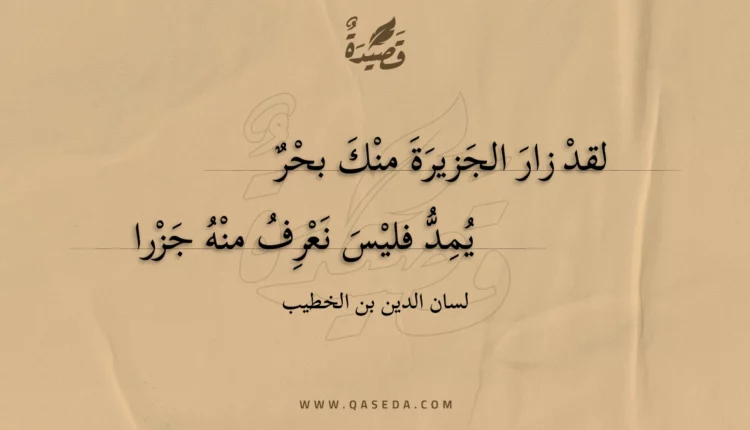 قَصِيْدَةٌ
لقدْ زارَ الجَزيرَةَ منْكَ بحْرٌ
يُمِدُّ فليْسَ نَعْرِفُ منْهُ جَزْرا
لسان الدين بن الخطيب
WWW.QASEDA.COM